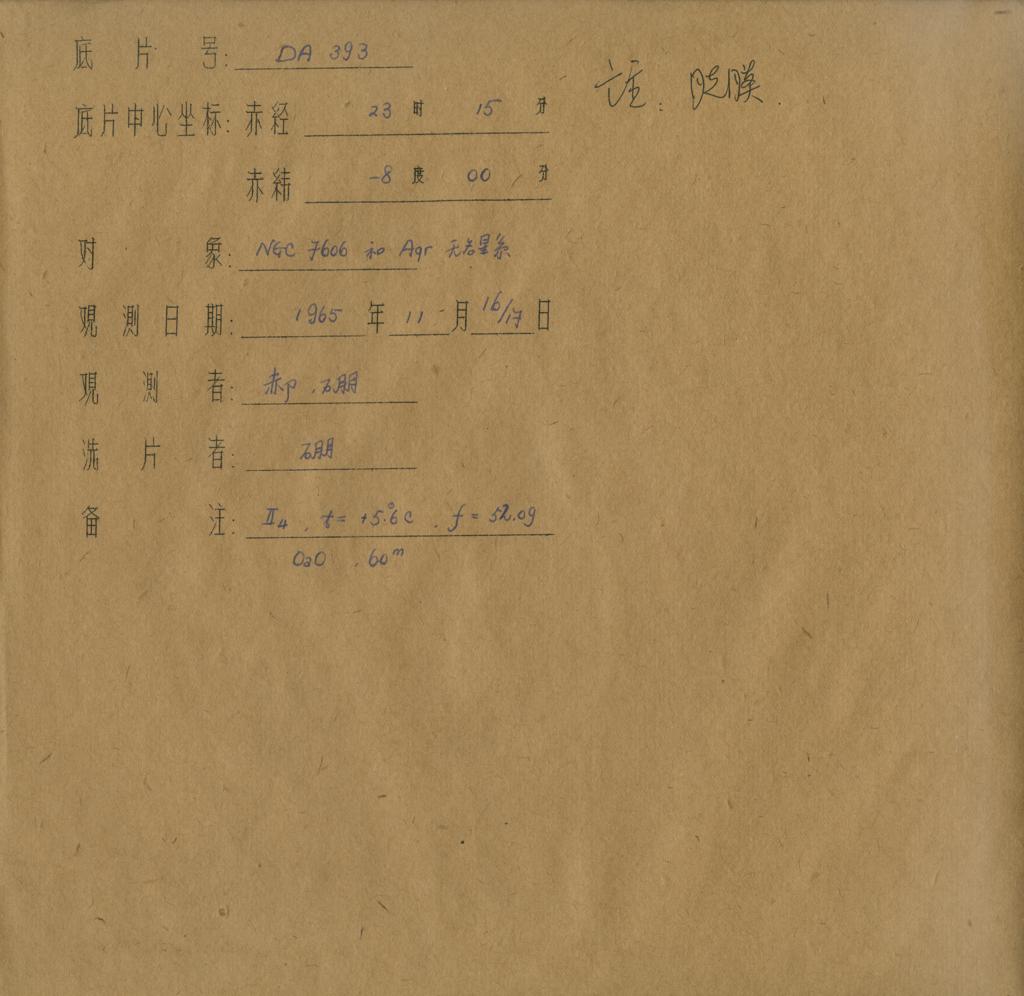 底片号: DA 393
注: 脱膜.
底片中心坐标: 赤经 23 时 15 分
赤纬 -8 度 00 分
对象: NGC 7606 和 Aqr 星系
观测日期: 1965 年 11 月 16/17 日
观测者: 郝, 硼
洗片者: 硼
备注: II4, t = +5.°6c, f = 52.09
OaO, 60ᵐ